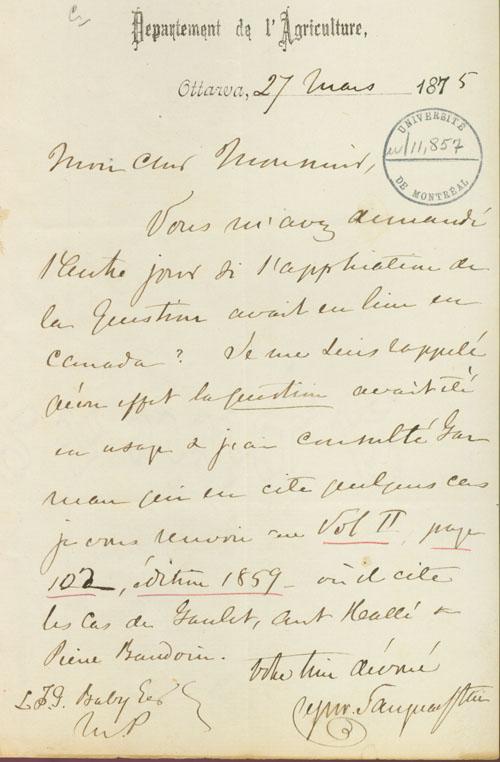 Département de l'Agriculture,
Ottawa, 27 Mars 1875
UNIVERSITÉ
11,857
DE MONTRÉAL
Mon cher Monsieur,
Vous m'avez demandé
l'autre jour si l'application de
la Question avait eu lieu en
Canada? Je me suis rappelé
qu'en effet la question avait été
en usage & j'ai consulté Gar
neau qui en cite quelques cas
je vous renvoie au Vol II, page
102, édition 1859 - où il cite
les cas de Gaulet, Hallé &
Pierre Baudoin.
Votre tout dévoué
L. F. G. Baby Ecr
M.P.